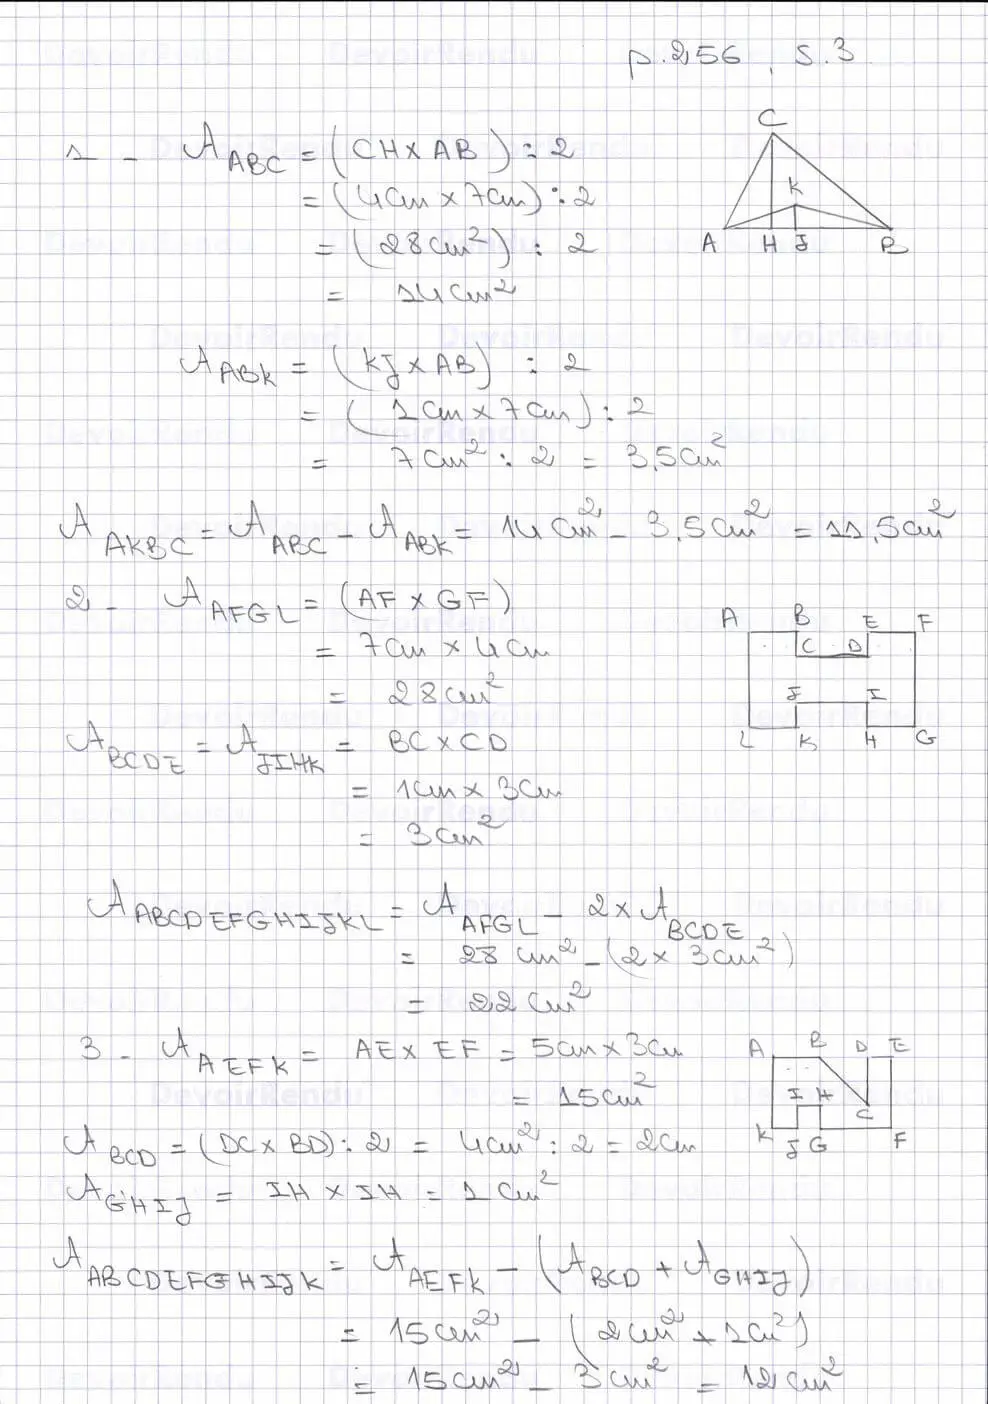 p.256, S.3
1 - A ABC = (CH x AB) : 2
= (4cm x 7cm) : 2
= (28cm²) : 2
= 14cm²
C
K
A H J B
A ABK = (KJ x AB) : 2
= (1cm x 7cm) : 2
= 7cm² : 2 = 3,5cm²
A AKBC = A ABC - A ABK = 14cm² - 3,5cm² = 11,5cm²
2 - A AFGL = (AF x GF)
= 7cm x 4cm
= 28cm²
A B E F
C D
J I
L K H G
A BCDE = A JIHK = BC x CD
= 1cm x 3cm
= 3cm²
A ABCDEFGHIJKL = A AFGL - 2 x A BCDE
= 28cm² - (2 x 3cm²)
= 22cm²
3 - A AEFK = AE x EF = 5cm x 3cm
= 15cm²
A B D E
I H C
K J G F
A BCD = (DC x BD) : 2 = 4cm² : 2 = 2cm
A GHIJ = IH x IH = 1cm²
A ABCDEFGHIJK = A AEFK - (A BCD + A GHIJ)
= 15cm² - (2cm² + 1cm²)
= 15cm² - 3cm² = 12cm²
DevoirRendu